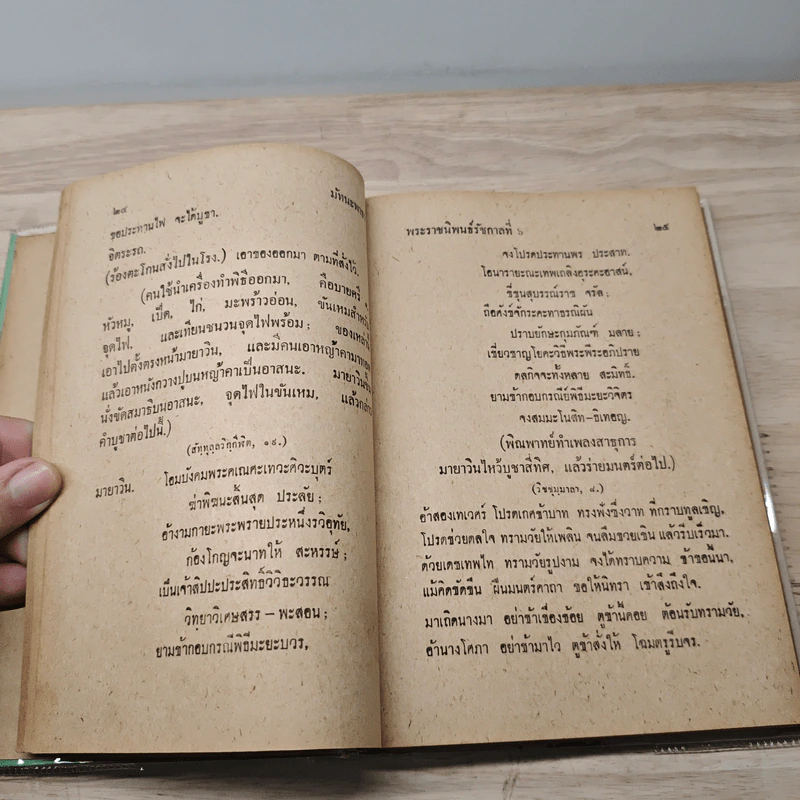 ๒๔
มัทนะพาธา
ขอประทานไฟ จะได้บูชา.
จิตระรถ.
(ร้องตะโกนสั่งไปในโรง.) เอาของออกมา ตามที่สั่งไว้.
(คนใช้นำเครื่องทำพิธีออกมา, คือบายศรี
หัวหมู, เป็ด, ไก่, มะพร้าวอ่อน, ขันเหมสำหรับ
จุดไฟ, และเทียนชนวนจุดไฟพร้อม; ของเหล่านี้
เอาไปตั้งตรงหน้ามายาวิน, และมีคนเอาหญ้าคามาทอด
แล้วเอาหนังกวางปูบนหญ้าคาเป็นอาสนะ. มายาวินขึ้น
นั่งขัดสมาธิบนอาสนะ, จุดไฟในขันเหม, แล้วกล่าว
คำบูชาต่อไปนี้.)
(สัททุลลวิกฺกีฬิต, ๑๙.)
มายาวิน. โอมบังคมพระคเณศะเทวะศิวะบุตร์
ฆ่าพิฆนะสิ้นสุด ประลัย;
อ้างามกายะพระพรายประหนึ่งรวิอุทัย,
ก้องโกญจะนาทให้ สะหรรษ์;
เป็นเจ้าสิปปะประสิทธิ์วิวิธะวรรณ
วิทยาวิเศษสรร – พะสอน;
ยามข้ากอบกรณีพิธีมะยะบวร,
พระราชนิพนธ์รัชกาลที่ ๖
๒๕
จงโปรดประทานพร ประสาท.
โอนารายะณะเทพเถลิงอุระคะอาสน์,
ขี่ขุนสุบรรณ์ราช จรัล;
ถือศังข์จักระคะทาธรณีผัน
ปราบยักษะกุมภัณฑ์ มลาย;
เชี่ยวชาญโยคะวิธีพระพีระอภิปราย
ดลกิจจะทั้งหลาย สะมิทธิ์.
ยามข้ากอบกรณีย์พิธีมะยะวิจิตร
จงสมมะโนสิท–ธิเทอญ.
(พิณพาทย์ทำเพลงสาธุการ
มายาวินไหว้บูชาสี่ทิศ, แล้วร่ายมนตร์ต่อไป.)
(วิชชุมฺมาลา, ๘.)
อ้าสองเทเวศร์ โปรดเกศข้าบาท ทรงฟังซึ่งวาท ที่กราบทูลเชิญ,
โปรดช่วยดลใจ ทรามวัยให้เพลิน จนลืมขวยเขิน แล้วรีบเร็วมา.
ด้วยเดชเทพไท ทรามวัยรูปงาม จงได้ทราบความ ข้าขอนี้นา,
แม้คิดขัดขืน ฝืนมนตร์คาถา ขอให้นิทรา เข้าสึงถึงใจ.
มาเถิดนางมา อย่าช้าเชื่องช้อย ตูข้านี้คอย ต้อนรับทรามวัย,
อ้านางโศภา อย่าช้ามาไว ตูข้าสั่งให้ โฉมตรูรีบจร.